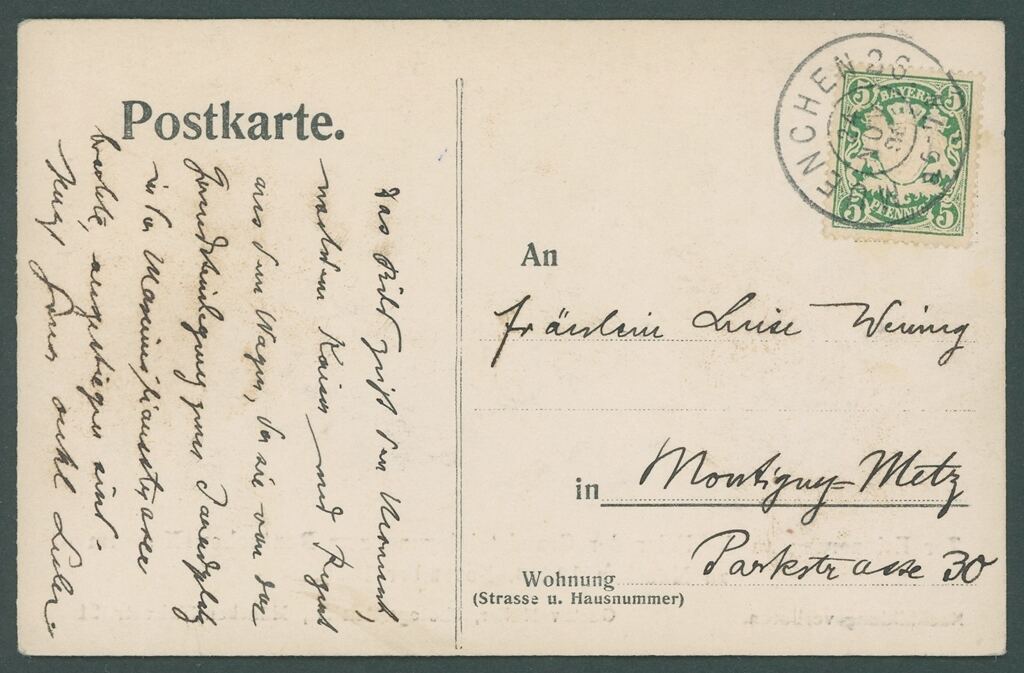 Postkarte.
Das Bild zeigt den Moment,
nachdem Kaiser und Regent
aus dem Wagen, der sie von der
Grundsteinlegung zum
in der Maximilianstrasse
brachte, ausgestiegen sind.
MÜNCHEN 26
24 NOV
BAYERN
5 5
5 5
PFENNIG
An
Fräulein Luise Wenning
in Montigny-Metz
Parkstrasse 30
Wohnung
(Strasse u. Hausnummer)